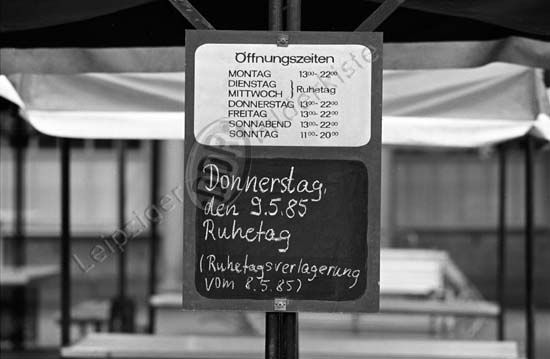 Öffnungszeiten
MONTAG 13⁰⁰- 22⁰⁰
DIENSTAG
MITTWOCH } Ruhetag
DONNERSTAG 13⁰⁰- 22⁰⁰
FREITAG 13⁰⁰- 22⁰⁰
SONNABEND 13⁰⁰- 22⁰⁰
SONNTAG 11⁰⁰- 20⁰⁰
Donnerstag,
den 9.5.85
Ruhetag
(Ruhetagsverlagerung
vom 8.5.85)
Leipziger Bilderkiste